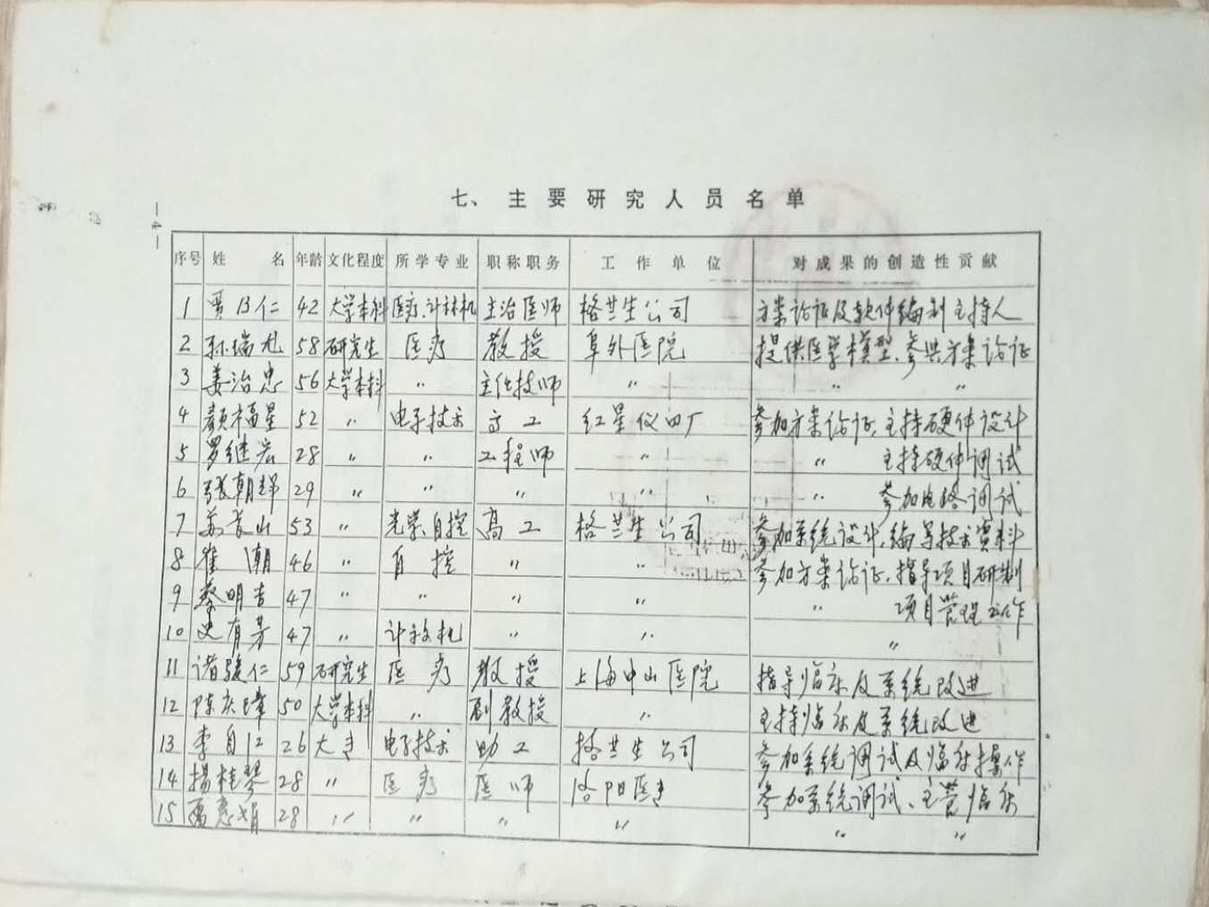 七、主要研究人员名单
—4—
序号 姓名 年龄 文化程度 所学专业 职称职务 工作单位 对成果的创造性贡献
1 贾日仁 42 大学本科 医疗、计算机 主治医师 格兰生公司 方案论证及软件编制主持人
2 孙瑞龙 58 研究生 医疗 教授 阜外医院 提供医学模型、参与方案论证
3 姜治忠 56 大学本科 〃 主任技师 〃 〃 〃
4 颜福星 52 〃 电子技术 高工 红星仪四厂 参加方案论证、主持硬件设计
5 罗继宏 28 〃 〃 工程师 〃 〃 主持硬件调试
6 张朝 29 〃 〃 〃 〃 〃 参加电路调试
7 山 53 〃 光学、自控 高工 格兰生公司 参加系统设计、编写技术资料
8 崔潮 46 〃 自控 〃 〃 参加方案论证、指导项目研制
9 蔡明 47 〃 〃 〃 〃 〃 项目管理工作
10 史有芳 47 〃 计算机 〃 〃 〃
11 诸骏仁 59 研究生 医疗 教授 上海中山医院 指导临床及系统改进
12 陈庆璋 50 大学本科 〃 副教授 〃 主持临床及系统改进
13 李自 26 大专 电子技术 助工 格兰生公司 参加系统调试及临床操作
14 杨桂琴 28 〃 医疗 医师 洛阳医专 参加系统调试、主管临床
15 惠娟 28 〃 〃 〃 〃 〃 〃